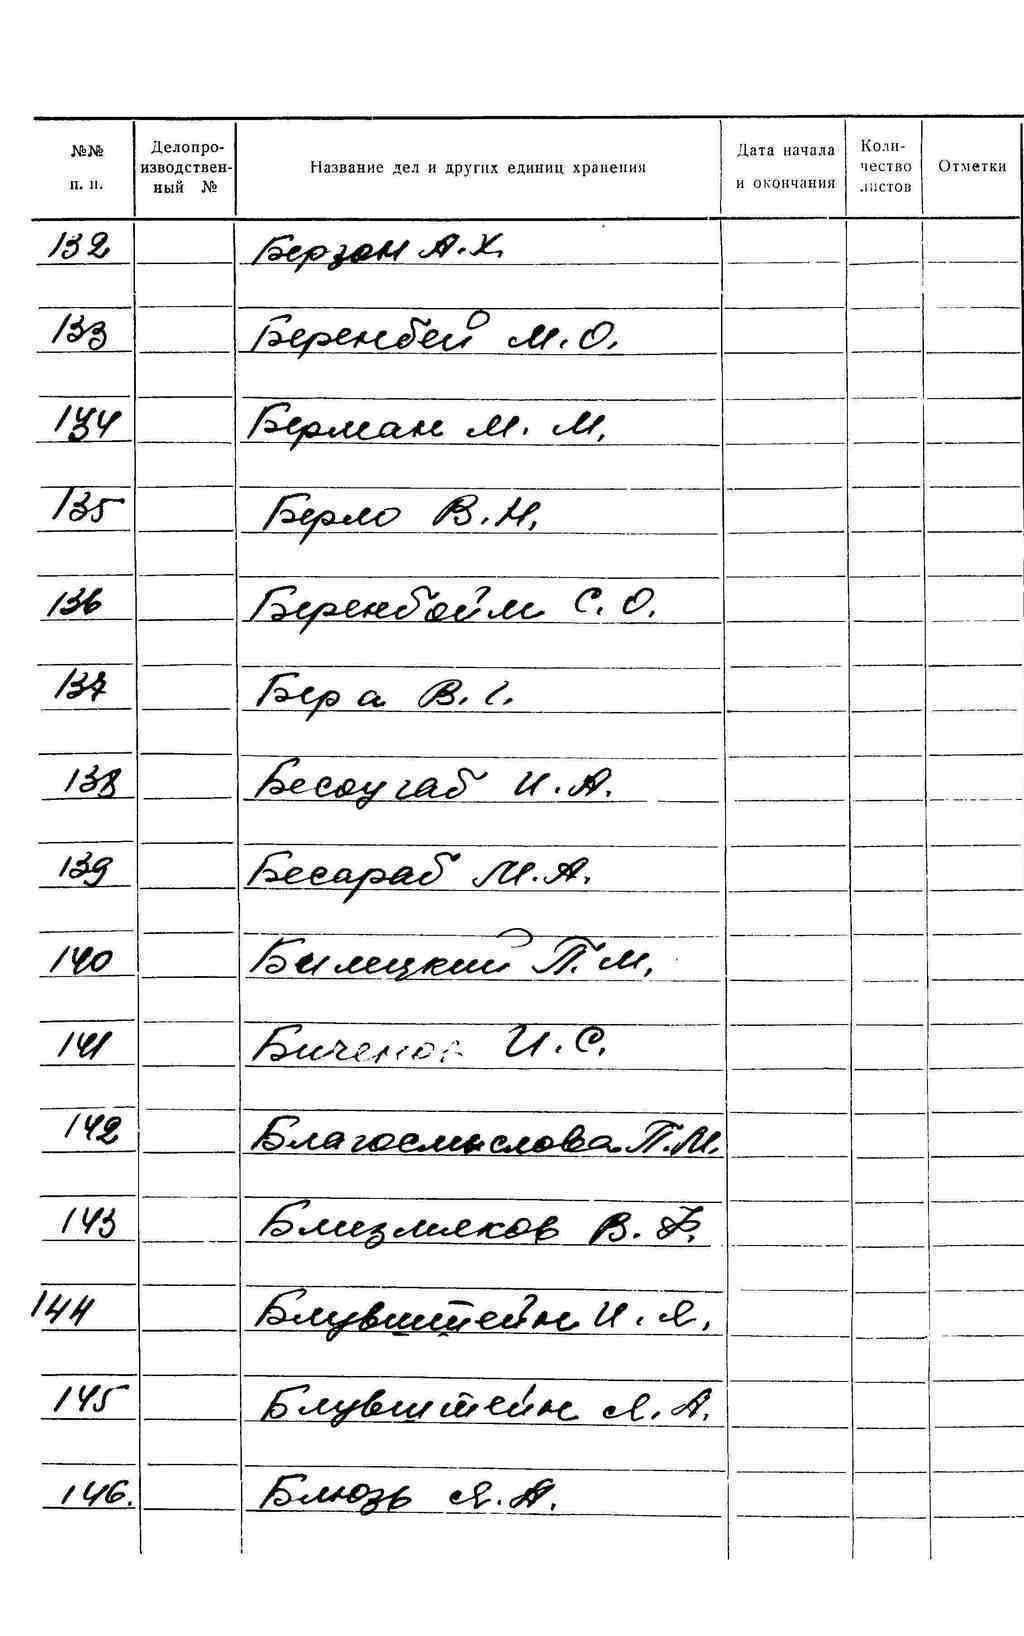 №№ п. п. Делопро-изводствен-ный № Название дел и других единиц хранения Дата начала и окончания Коли-чество листов Отметки
132 Берзон А.Х.
133 Беренбей М.О.
134 Берман М.М.
135 Берло В.Н.
136 Беренбойм С.О.
137 Бера В.Г.
138 И.А.
139 Бесараб М.А.
140 Билецкий П.М.
141 И.С.
142 Благосмыслова П.М.
143 Близмяков В.Ф.
144 Блувштейн И.Я.
145 Блувштейн Я.А.
146. Блюзь Я.А.